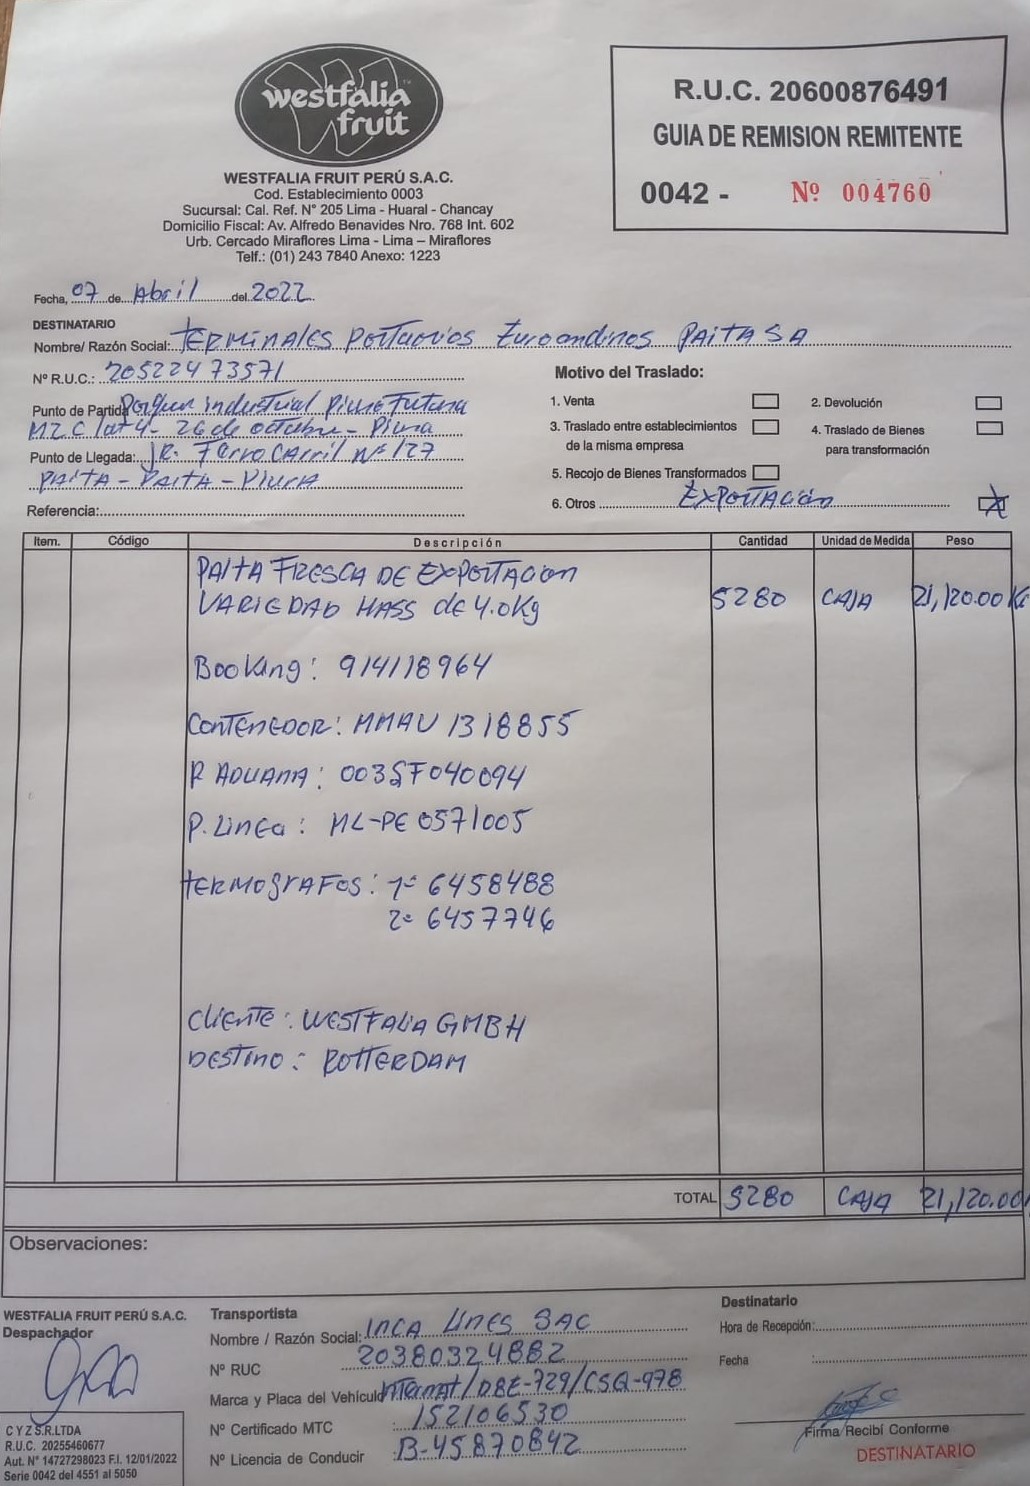 westfalia
fruit
WESTFALIA FRUIT PERÚ S.A.C.
Cod. Establecimiento 0003
Sucursal: Cal. Ref. N° 205 Lima - Huaral - Chancay
Domicilio Fiscal: Av. Alfredo Benavides Nro. 768 Int. 602
Urb. Cercado Miraflores Lima - Lima – Miraflores
Telf.: (01) 243 7840 Anexo: 1223
R.U.C. 20600876491
GUIA DE REMISION REMITENTE
0042 - Nº 004760
Fecha, 07 de Abril del 2022
DESTINATARIO
Nombre/ Razón Social: TERMINALES PORTUARIOS Euroandinos PAITA SA
Nº R.U.C.: 20522473571
Punto de Partida: Parque industrial Piura Futura
MZ C lot 4 - 26 de octubre - Piura
Punto de Llegada: JR. FERROCARRIL Nº 127
PAITA - PAITA - PIURA
Referencia:
Motivo del Traslado:
1. Venta
2. Devolución
3. Traslado entre establecimientos
de la misma empresa
4. Traslado de Bienes
para transformación
5. Recojo de Bienes Transformados
6. Otros EXPORTACIÓN X
Item. Código Descripción Cantidad Unidad de Medida Peso
PALTA FRESCA DE EXPORTACION
VARIEDAD HASS de 4.0Kg 5280 CAJA 21,120.00 KG
Booking: 914118964
CONTENEDOR: MMAU 1318855
P. ADUANA: 003SF040094
P. Linea: ML-PE 0571005
TERMOGRAFOS: 1= 6458488
2= 6457746
CLIENTE: WESTFALIA GMBH
DESTINO: ROTTERDAM
TOTAL 5280 CAJA 21,120.00
Observaciones:
WESTFALIA FRUIT PERÚ S.A.C.
Despachador
C Y Z S.R.LTDA
R.U.C. 20255460677
Aut. N° 14727298023 F.I. 12/01/2022
Serie 0042 del 4551 al 5050
Transportista
Nombre / Razón Social: INCA LINES SAC
Nº RUC 20380324882
Marca y Placa del Vehículo Internat/D8E-729/CSQ-978
Nº Certificado MTC 152106530
Nº Licencia de Conducir B-45870842
Destinatario
Hora de Recepción:
Fecha :
Firma Recibí Conforme
DESTINATARIO